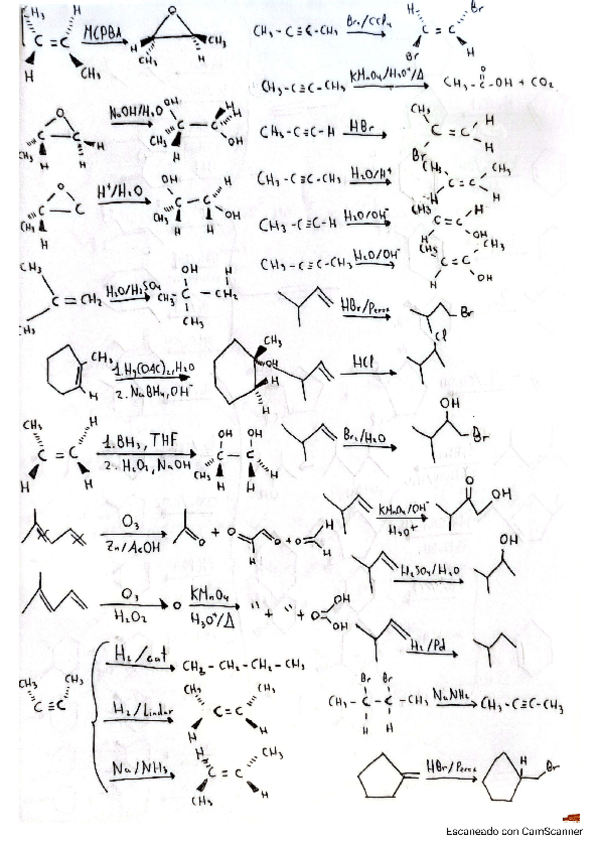 CH₃ H C=C H CH₃ MCPBA O H CH₃ H CH₃
CH₃-C≡C-CH₃ Br₂/CCl₄ H Br C=C Br H
CH₃-C≡C-CH₃ KMnO₄/H₃O⁺/Δ CH₃-C-OH + CO₂ O
O C-C CH₃ H H H NaOH/H₂O OH C-C H H CH₃ H OH
CH₃-C≡C-H HBr CH₃ C=C H Br H
O C-C CH₃ H H⁺/H₂O OH C-C H CH₃ H OH H
CH₃-C≡C-CH₃ H₂O/H⁺ CH₃ C=C CH₃ H
CH₃-C≡C-H H₂O/OH⁻ CH₃ C=C H H OH
CH₃-C≡C-CH₃ H₂O/OH⁻ CH₃ C=C CH₃ H OH
CH₃ C=CH₂ CH₃ H₂O/H₂SO₄ OH H CH₃-C-CH₂ CH₃
HBr/Perox Br
CH₃ H 1. Hg(OAc)₂, H₂O 2. NaBH₄, OH⁻ CH₃ OH H H
HCl Cl
CH₃ H C=C H H 1. BH₃, THF 2. H₂O₂, NaOH OH OH C-C CH₃ H H H
Br₂/H₂O OH Br
O₃ Zn/AcOH O + O O + O H H
KMnO₄/OH⁻ H₃O⁺ O OH
H₂SO₄/H₂O OH
O₃ H₂O₂ O KMnO₄ H₃O⁺/Δ " + " + O OH OH
H₂/Pd
CH₃ CH₃ C≡C
H₂/cat CH₃-CH₂-CH₂-CH₃
H₂/Lindlar CH₃ CH₃ C=C H H
Na/NH₃ H CH₃ C=C CH₃ H
Br Br CH₃-C-C-CH₃ H H NaNH₂ CH₃-C≡C-CH₃
HBr/Perox H Br
Escaneado con CamScanner